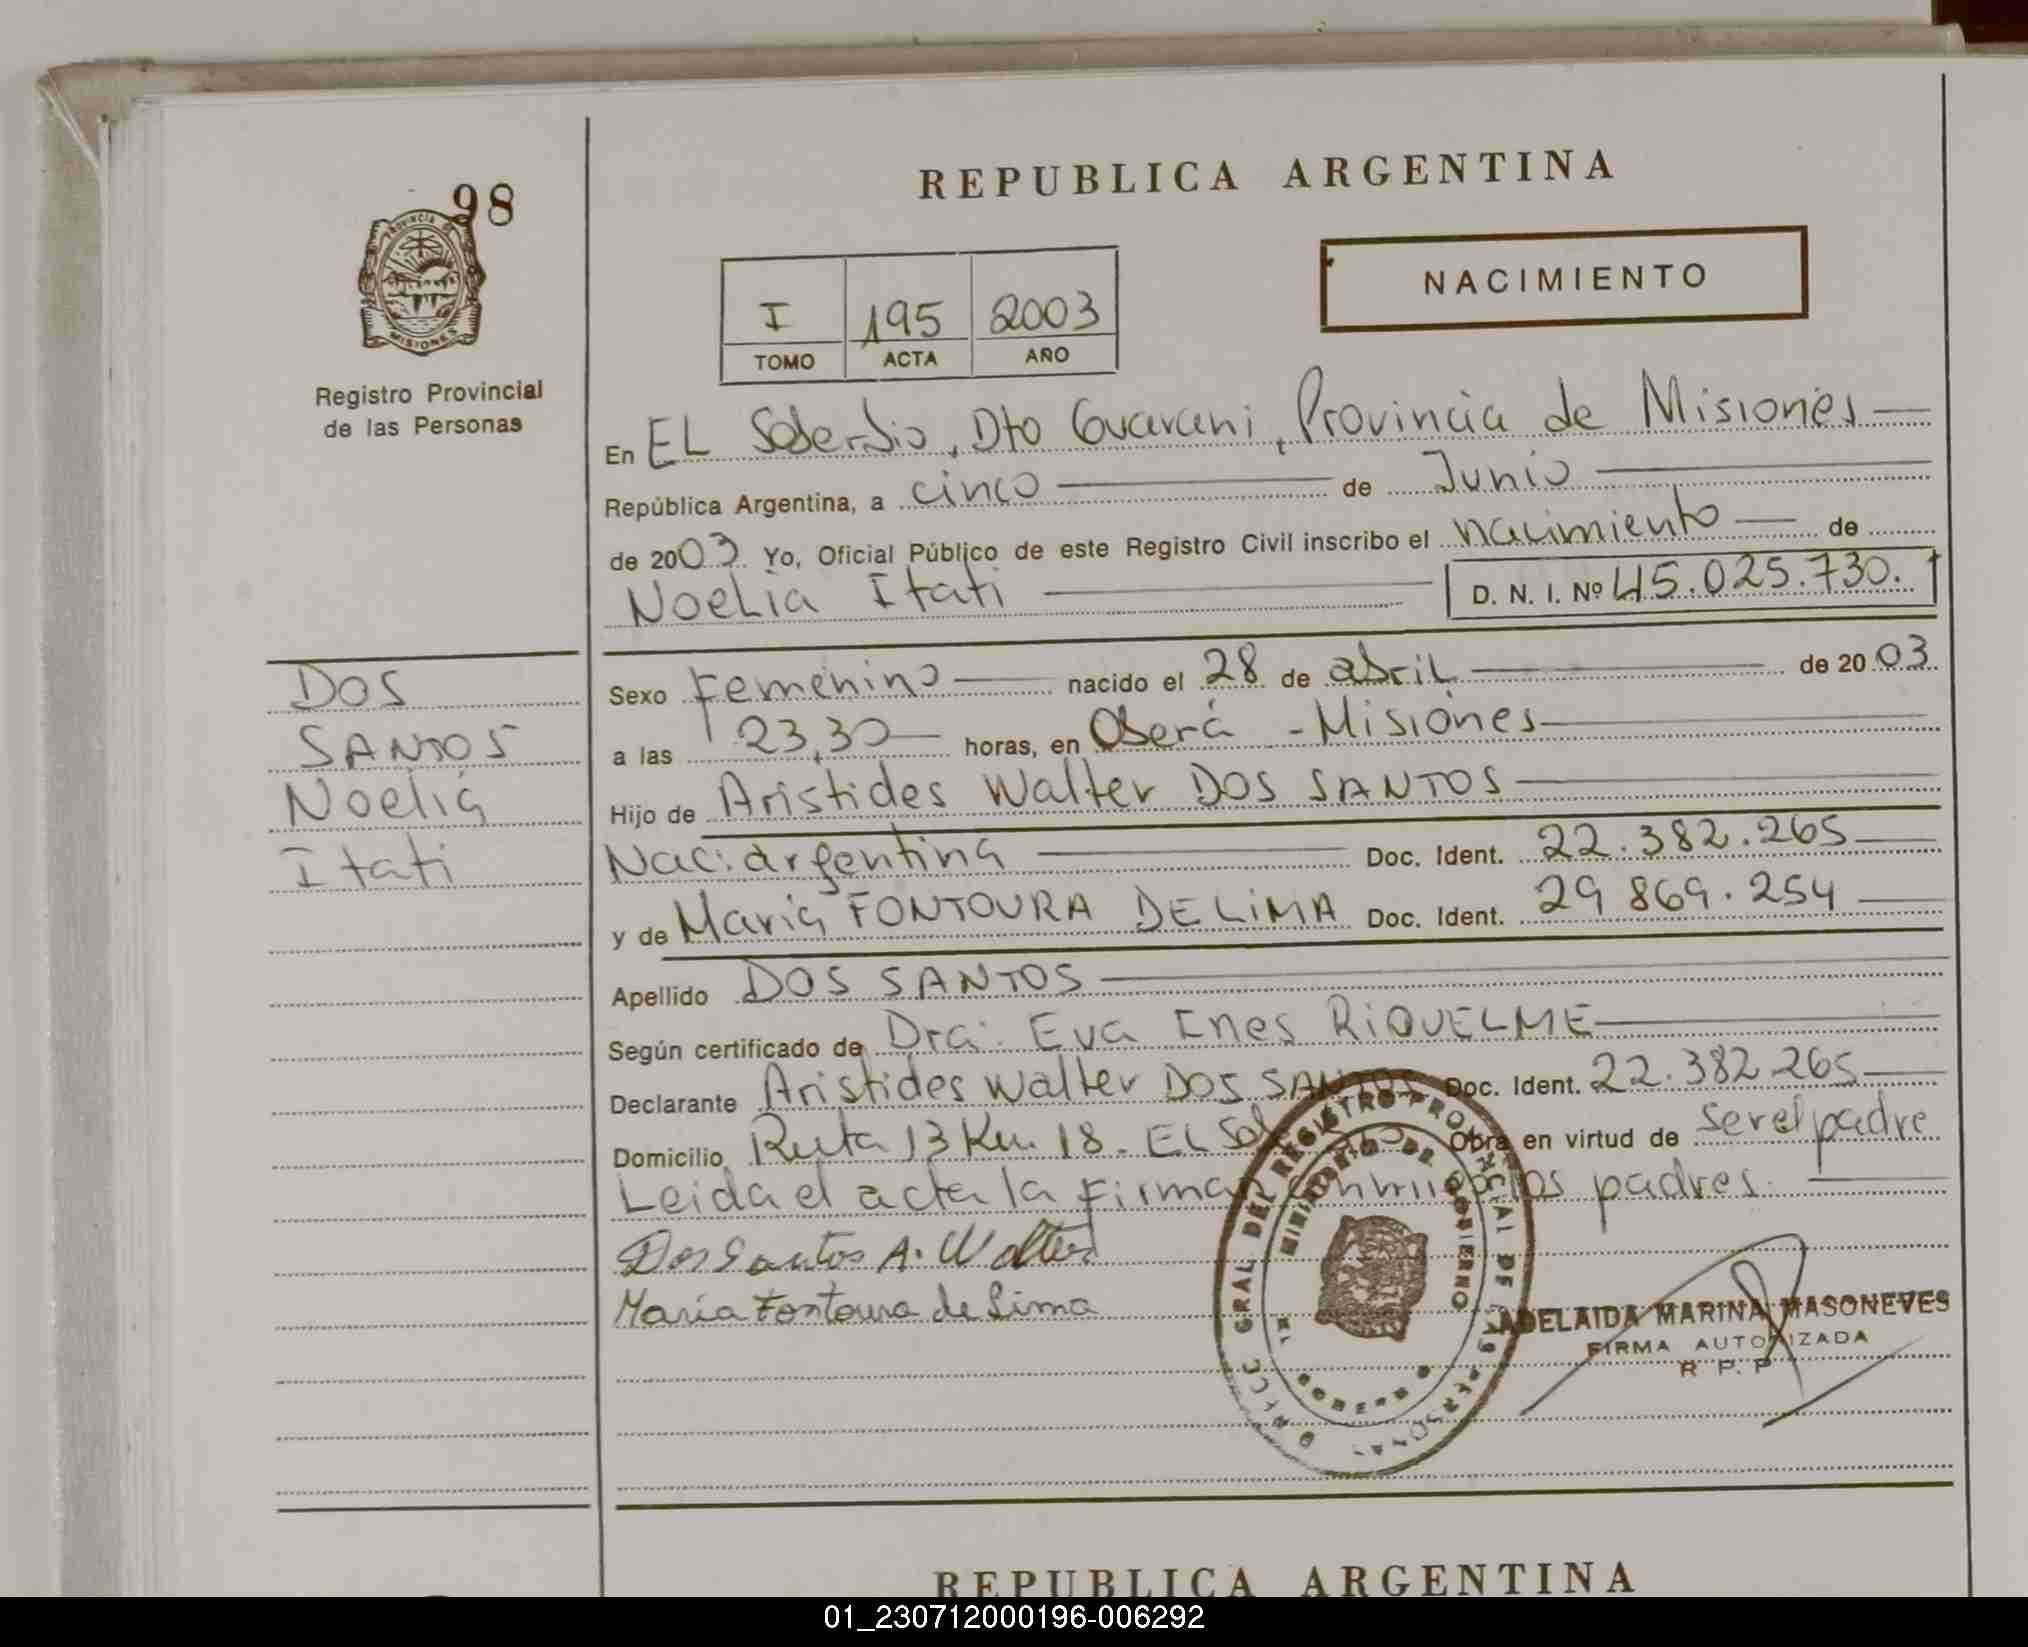 98
PROVINCIA DE
MISIONES
Registro Provincial
de las Personas
REPUBLICA ARGENTINA
NACIMIENTO
I 195 2003
TOMO ACTA AÑO
En EL Soberbio, Dto Guarani, Provincia de Misiones
República Argentina, a cinco de Junio
de 2003 Yo, Oficial Público de este Registro Civil inscribo el nacimiento de
Noelia Itati D. N. I. Nº 45.025.730.
DOS
SANTOS
Noelia
Itati
Sexo Femenino nacido el 28 de abril de 2003
a las 23,30 horas, en Oberá - Misiones
Hijo de Aristides Walter DOS SANTOS
Nac: argentina Doc. Ident. 22.382.265
y de Maria FONTOURA DE LIMA Doc. Ident. 29 869.254
Apellido DOS SANTOS
Según certificado de Dra: Eva Ines RIQUELME
Declarante Aristides Walter DOS SANTOS Doc. Ident. 22.382.265
Domicilio Ruta 13 Km. 18. EL Obra en virtud de ser el padre
Leida el acta la Firman los padres.
Dos Santos A. Walter
María Fontoura de Lima
GRAL DEL REGISTRO PROVINCIAL DE LAS PERSONAS
MINISTERIO DE GOBIERNO
ADELAIDA MARINA MASONEVES
FIRMA AUTORIZADA
R. P. P
REPUBLICA ARGENTINA
01_230712000196-006292